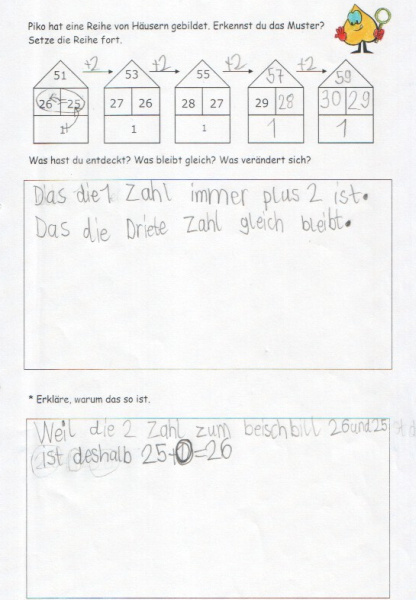 Piko hat eine Reihe von Häusern gebildet. Erkennst du das Muster?
Setze die Reihe fort.
+2 +2 +2 +2
51 53 55 57 59
26 25 27 26 28 27 29 28 30 29
1 1 1 1 1
Was hast du entdeckt? Was bleibt gleich? Was verändert sich?
Das die 1 Zahl immer plus 2 ist.
Das die Driete Zahl gleich bleibt.
* Erkläre, warum das so ist.
Weil die 2 Zahl zum beischbill 26 und 25 ist
ist deshalb 25+1=26